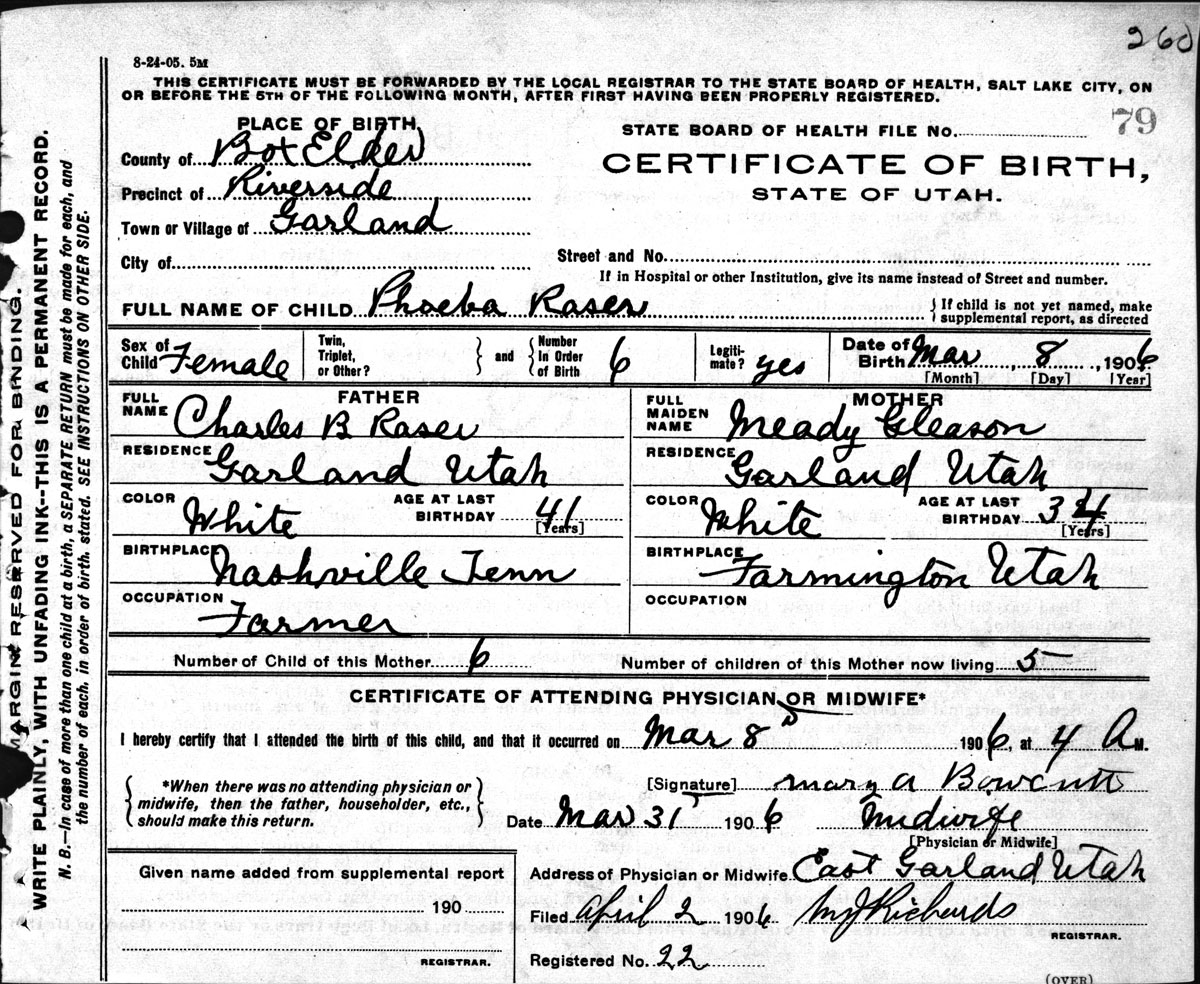 260
8-24-05. 5M
THIS CERTIFICATE MUST BE FORWARDED BY THE LOCAL REGISTRAR TO THE STATE BOARD OF HEALTH, SALT LAKE CITY, ON
OR BEFORE THE 5TH OF THE FOLLOWING MONTH, AFTER FIRST HAVING BEEN PROPERLY REGISTERED.
PLACE OF BIRTH,
STATE BOARD OF HEALTH FILE No. 79
County of Box Elder
CERTIFICATE OF BIRTH,
Precinct of Riverside
STATE OF UTAH.
Town or Village of Garland
City of
Street and No.
If in Hospital or other Institution, give its name instead of Street and number.
FULL NAME OF CHILD Phoeba Raser
If child is not yet named, make
supplemental report, as directed
Sex of Child Female
Twin, Triplet, or Other? and Number In Order of Birth 6
Legiti-mate? yes
Date of Birth Mar 8, 1906
[Month] [Day] [Year]
FATHER
FULL NAME Charles B Raser
RESIDENCE Garland Utah
COLOR White AGE AT LAST BIRTHDAY 41 [Years]
BIRTHPLACE Nashville Tenn
OCCUPATION Farmer
MOTHER
FULL MAIDEN NAME Meady Gleason
RESIDENCE Garland Utah
COLOR White AGE AT LAST BIRTHDAY 34 [Years]
BIRTHPLACE Farmington Utah
OCCUPATION
Number of Child of this Mother 6 Number of children of this Mother now living 5
CERTIFICATE OF ATTENDING PHYSICIAN OR MIDWIFE*
I hereby certify that I attended the birth of this child, and that it occurred on Mar 8 1906, at 4 A M.
*When there was no attending physician or
midwife, then the father, householder, etc.,
should make this return.
[Signature] Mary A Bowcutt
Date Mar 31 1906 Midwife
[Physician or Midwife]
Given name added from supplemental report
190
REGISTRAR.
Address of Physician or Midwife East Garland Utah
Filed April 2 1906 M J Richards
REGISTRAR.
Registered No. 22
(OVER)
MARGIN RESERVED FOR BINDING.
WRITE PLAINLY, WITH UNFADING INK--THIS IS A PERMANENT RECORD.
N. B.--In case of more than one child at a birth, a SEPARATE RETURN must be made for each, and
the number of each, in order of birth, stated. SEE INSTRUCTIONS ON OTHER SIDE.